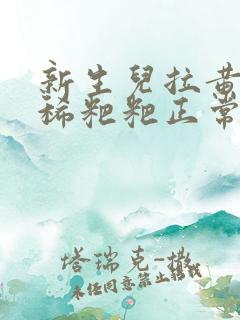 新生兒拉黃
稀粑粑正常
塔瑞克-撒
未经同意禁止转载